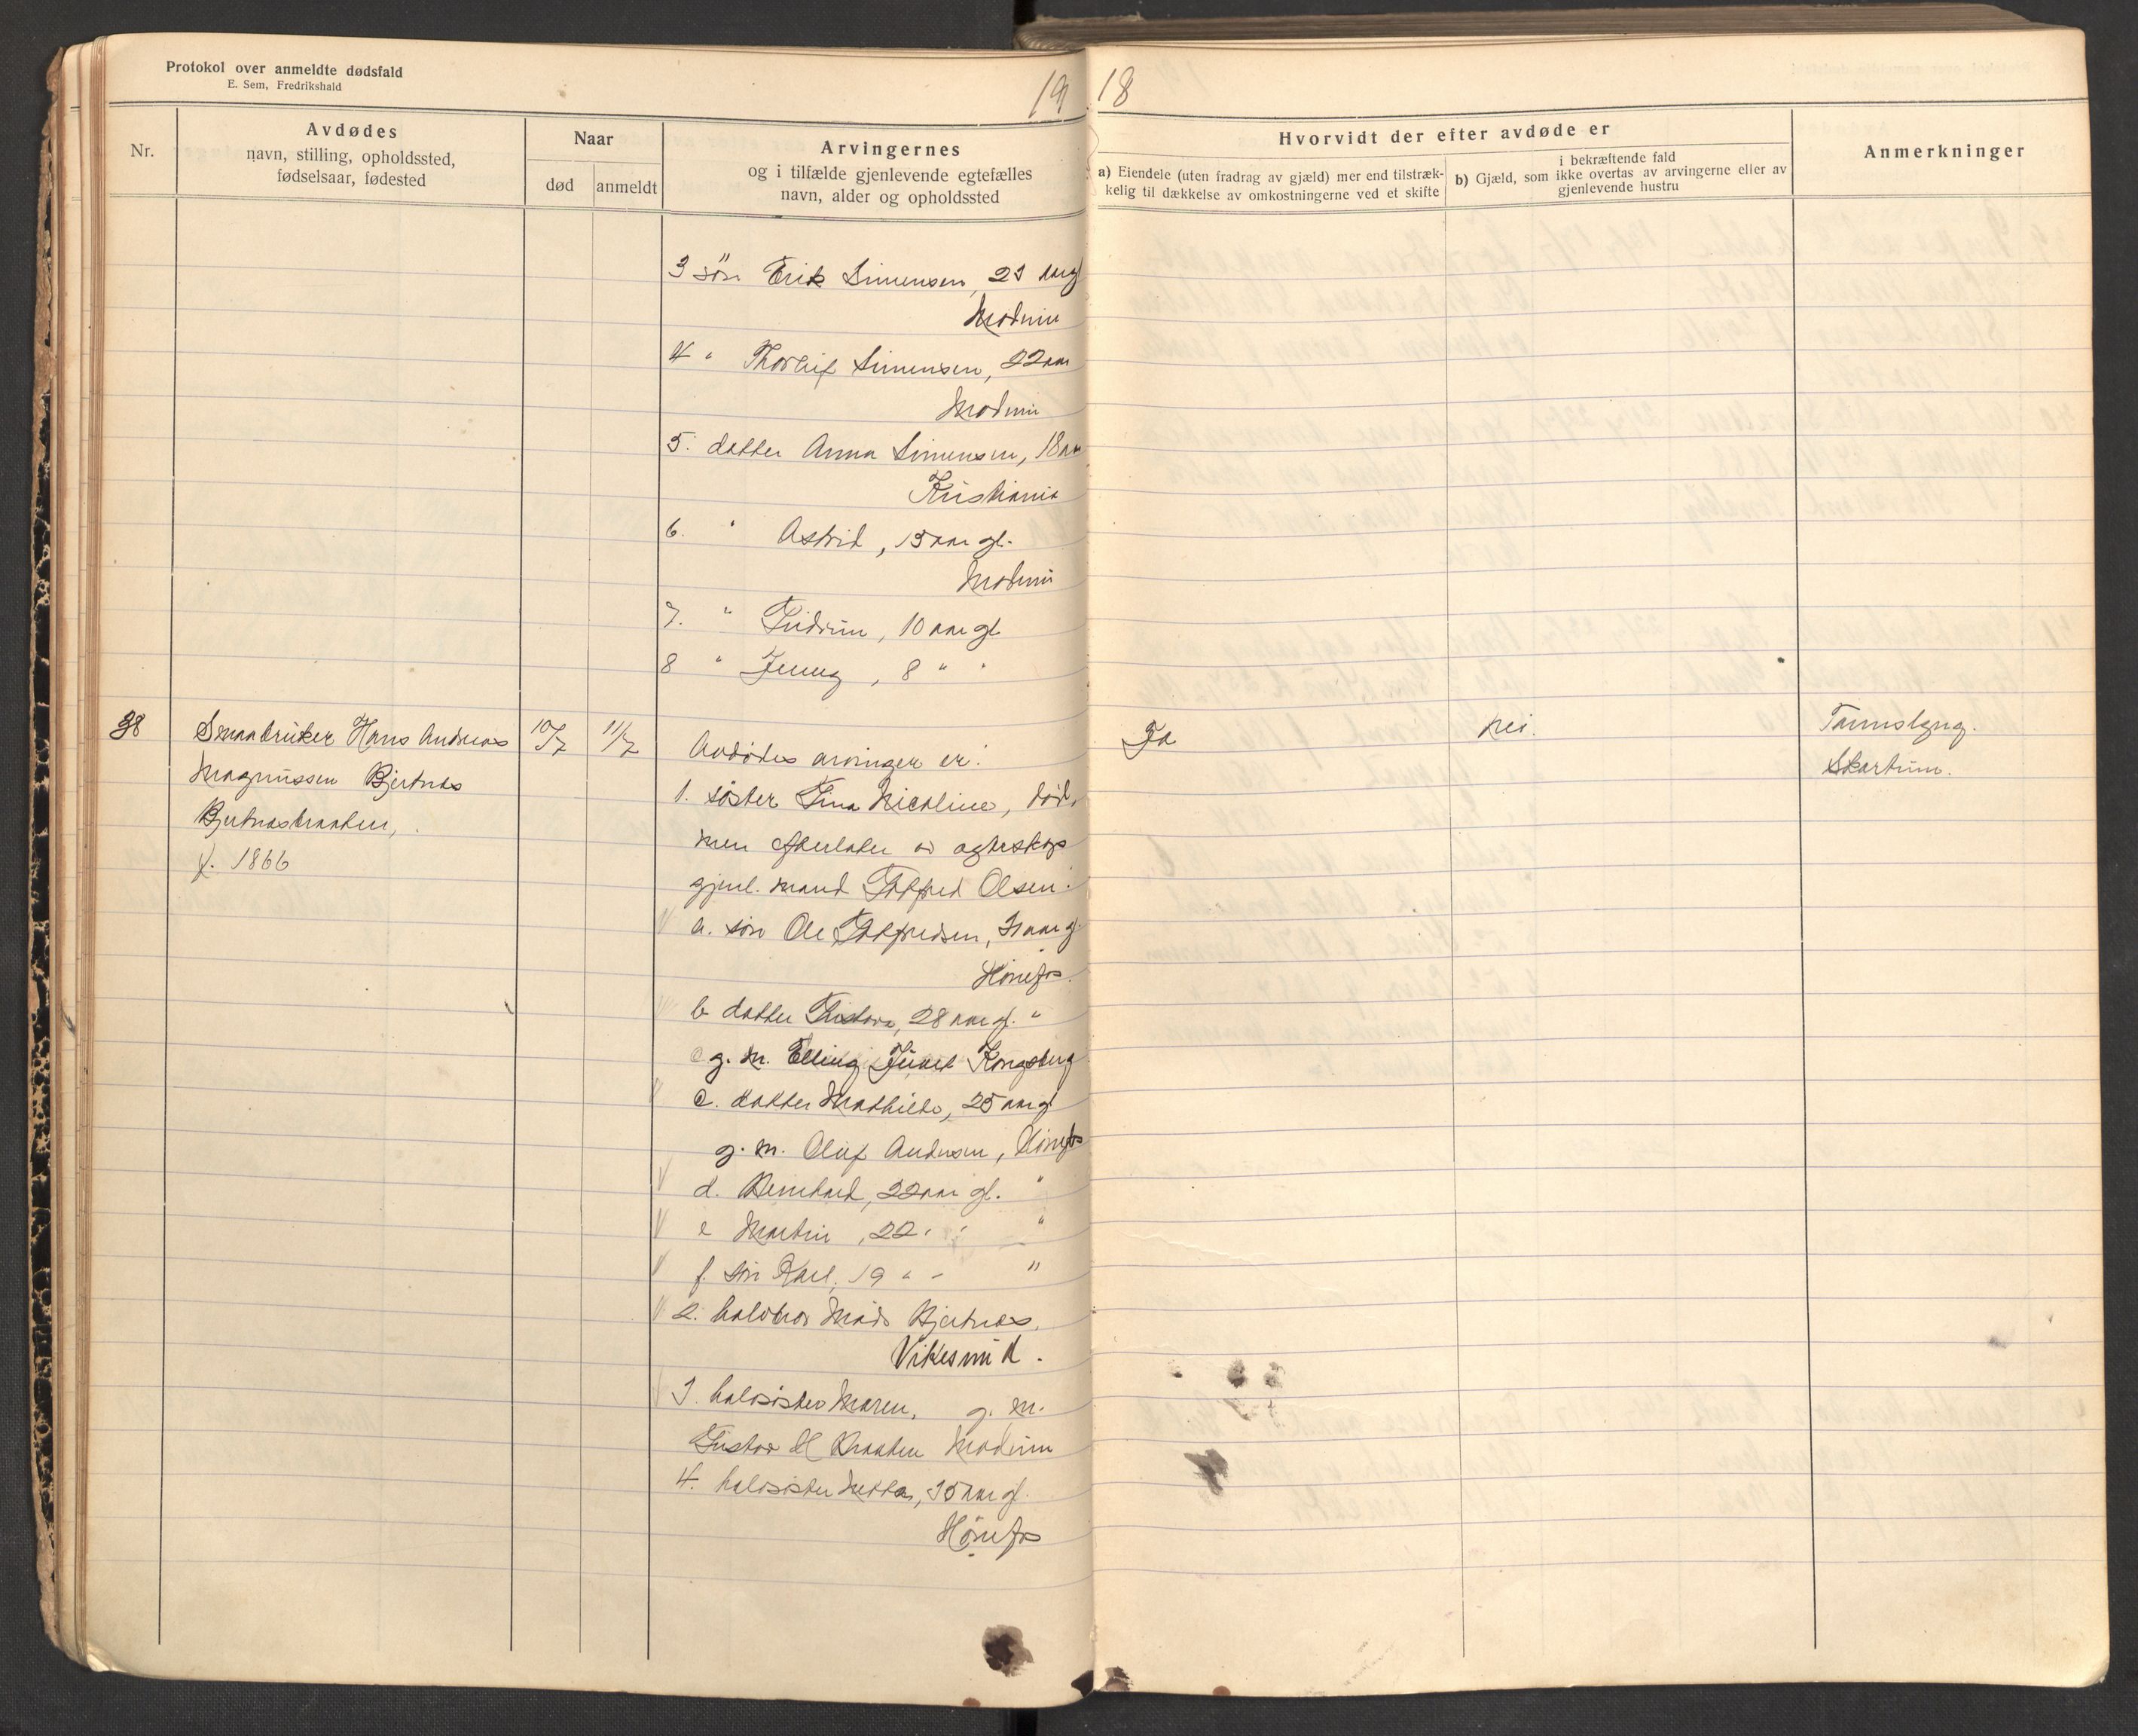 Protokol over anmeldte dødsfald
E. Sem, Fredrikshald
19 18
Nr.
Avdødes
navn, stilling, opholdssted,
fødselsaar, fødested
Naar
død
anmeldt
Arvingernes
og i tilfælde gjenlevende egtefælles
navn, alder og opholdssted
Hvorvidt der efter avdøde er
a) Eiendele (uten fradrag av gjæld) mer end tilstræk-
kelig til dækkelse av omkostningerne ved et skifte
i bekræftende fald
b) Gjæld, som ikke overtas av arvingerne eller av
gjenlevende hustru
Anmerkninger
3 søn Erik Simensen, 23 aargl
Modum
4 " Thorleif Simensen, 22 aar
Modum
5. datter Anna Simensen, 18 aar
Kristiania
6. " Astrid, 13 aar gl.
Modum
7. " Gudrun, 10 aar gl
8 " Jenny, 8 " "
38
Smaabruker Hans Andreas
Magnussen Bjertnes
Bjertnesbraaten,
f. 1866
10/7
11/7
Avdødes arvinger er:
1. søster Gina Nicoline, død,
men efterlater av egteskap
gjenl. mand Olsen.
a. søn Ole 31 aar gl.
Hönefos.
b datter 28 aar gl. "
g. m. Elling Kongsberg
c. datter Mathilde, 25 aar gl
g. m. Oluf Andersen, Hönefos
d. Bernhard, 22 aar gl. "
e Martin, 22 " " "
f. søn Karl, 19 " " "
2. halvbror Mads Bjertnes,
Vikesund.
3. halvsöster Maren, g. m.
Gustav H Braaten Modum
4. halvsöster 35 aar gl.
Hönefos
Ja
Nei.
Tvunslgng.
Skartum.